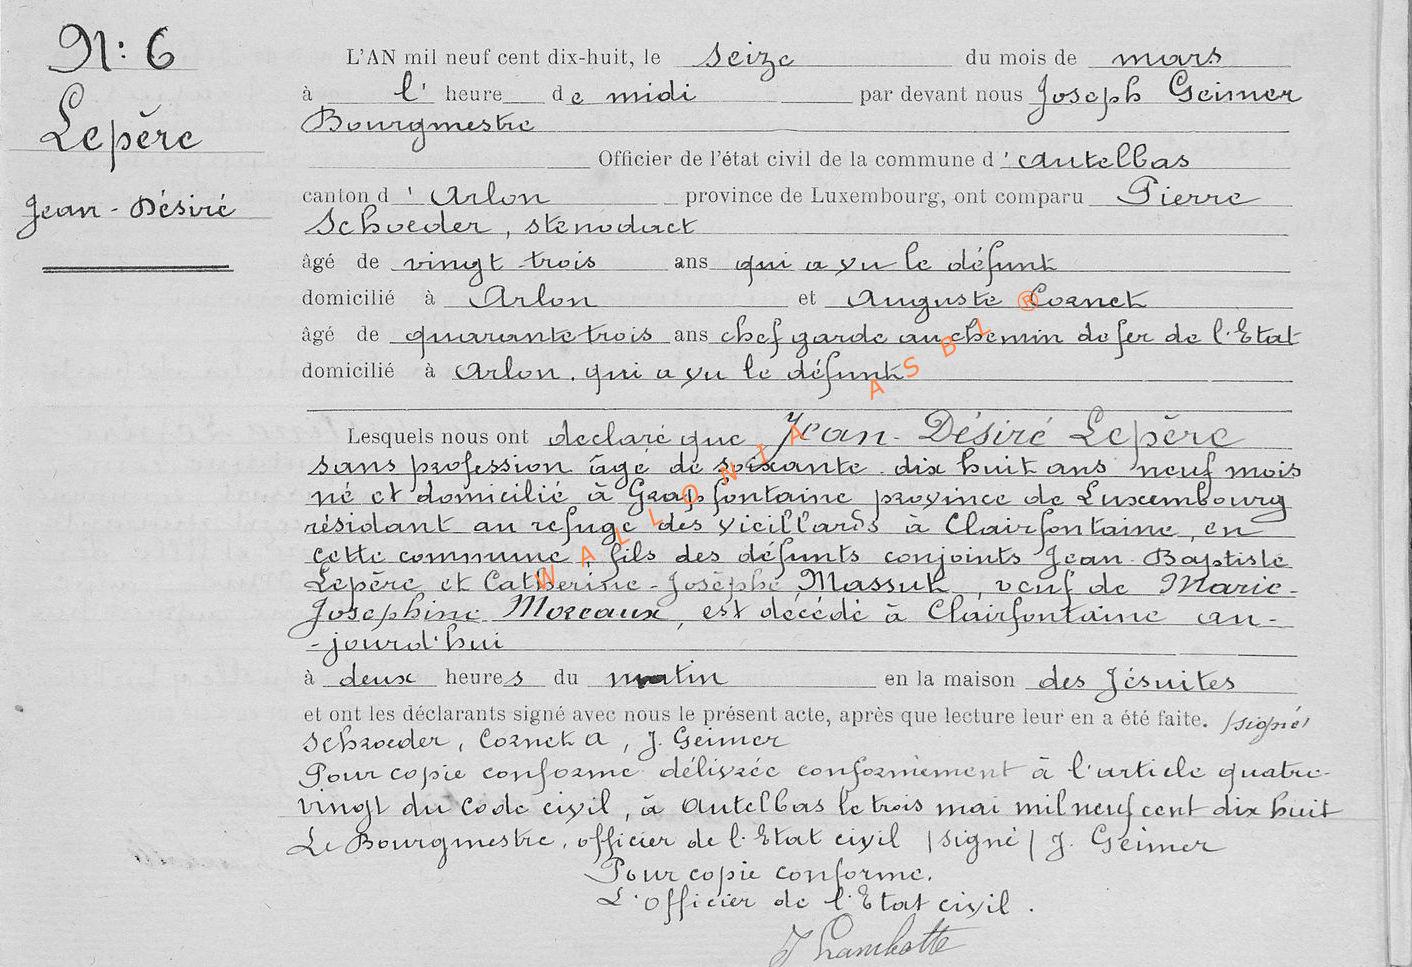 N: 6
Lepère
Jean-Désiré
L'AN mil neuf cent dix-huit, le seize du mois de mars
à l' heure de midi par devant nous Joseph Geimer
Bourgmestre
Officier de l'état civil de la commune d'Autelbas
canton d'Arlon province de Luxembourg, ont comparu Pierre
Schoeder, sténodact
âgé de vingt-trois ans qui a vu le défunt
domicilié à Arlon et Auguste Cornet
âgé de quarante trois ans chef garde au chemin de fer de l'Etat
domicilié à Arlon. qui a vu le défunt
Lesquels nous ont declaré que Jean-Désiré Lepère
sans profession âgé de soixante-dix huit ans neuf mois
né et domicilié à Grapfontaine province de Luxembourg
résidant au refuge des vieillards à Clairfontaine, en
cette commune, fils des défunts conjoints Jean-Baptiste
Lepère et Catherine-Josèphe Massut, veuf de Marie-
Josephine Moreaux, est décédé à Clairfontaine au-
-jourd'hui
à deux heures du matin en la maison des Jésuites
et ont les déclarants signé avec nous le présent acte, après que lecture leur en a été faite. /signé/
Schroeder, Cornet A, J. Geimer
Pour copie conforme délivrée conformément à l'article quatre-
vingt du Code civil, à Autelbas le trois mai mil neuf cent dix huit
Le Bourgmestre, officier de l'Etat civil /signé/ J. Geimer
Pour copie conforme.
L'officier de l'Etat civil.
WALLONIA ASBL ®